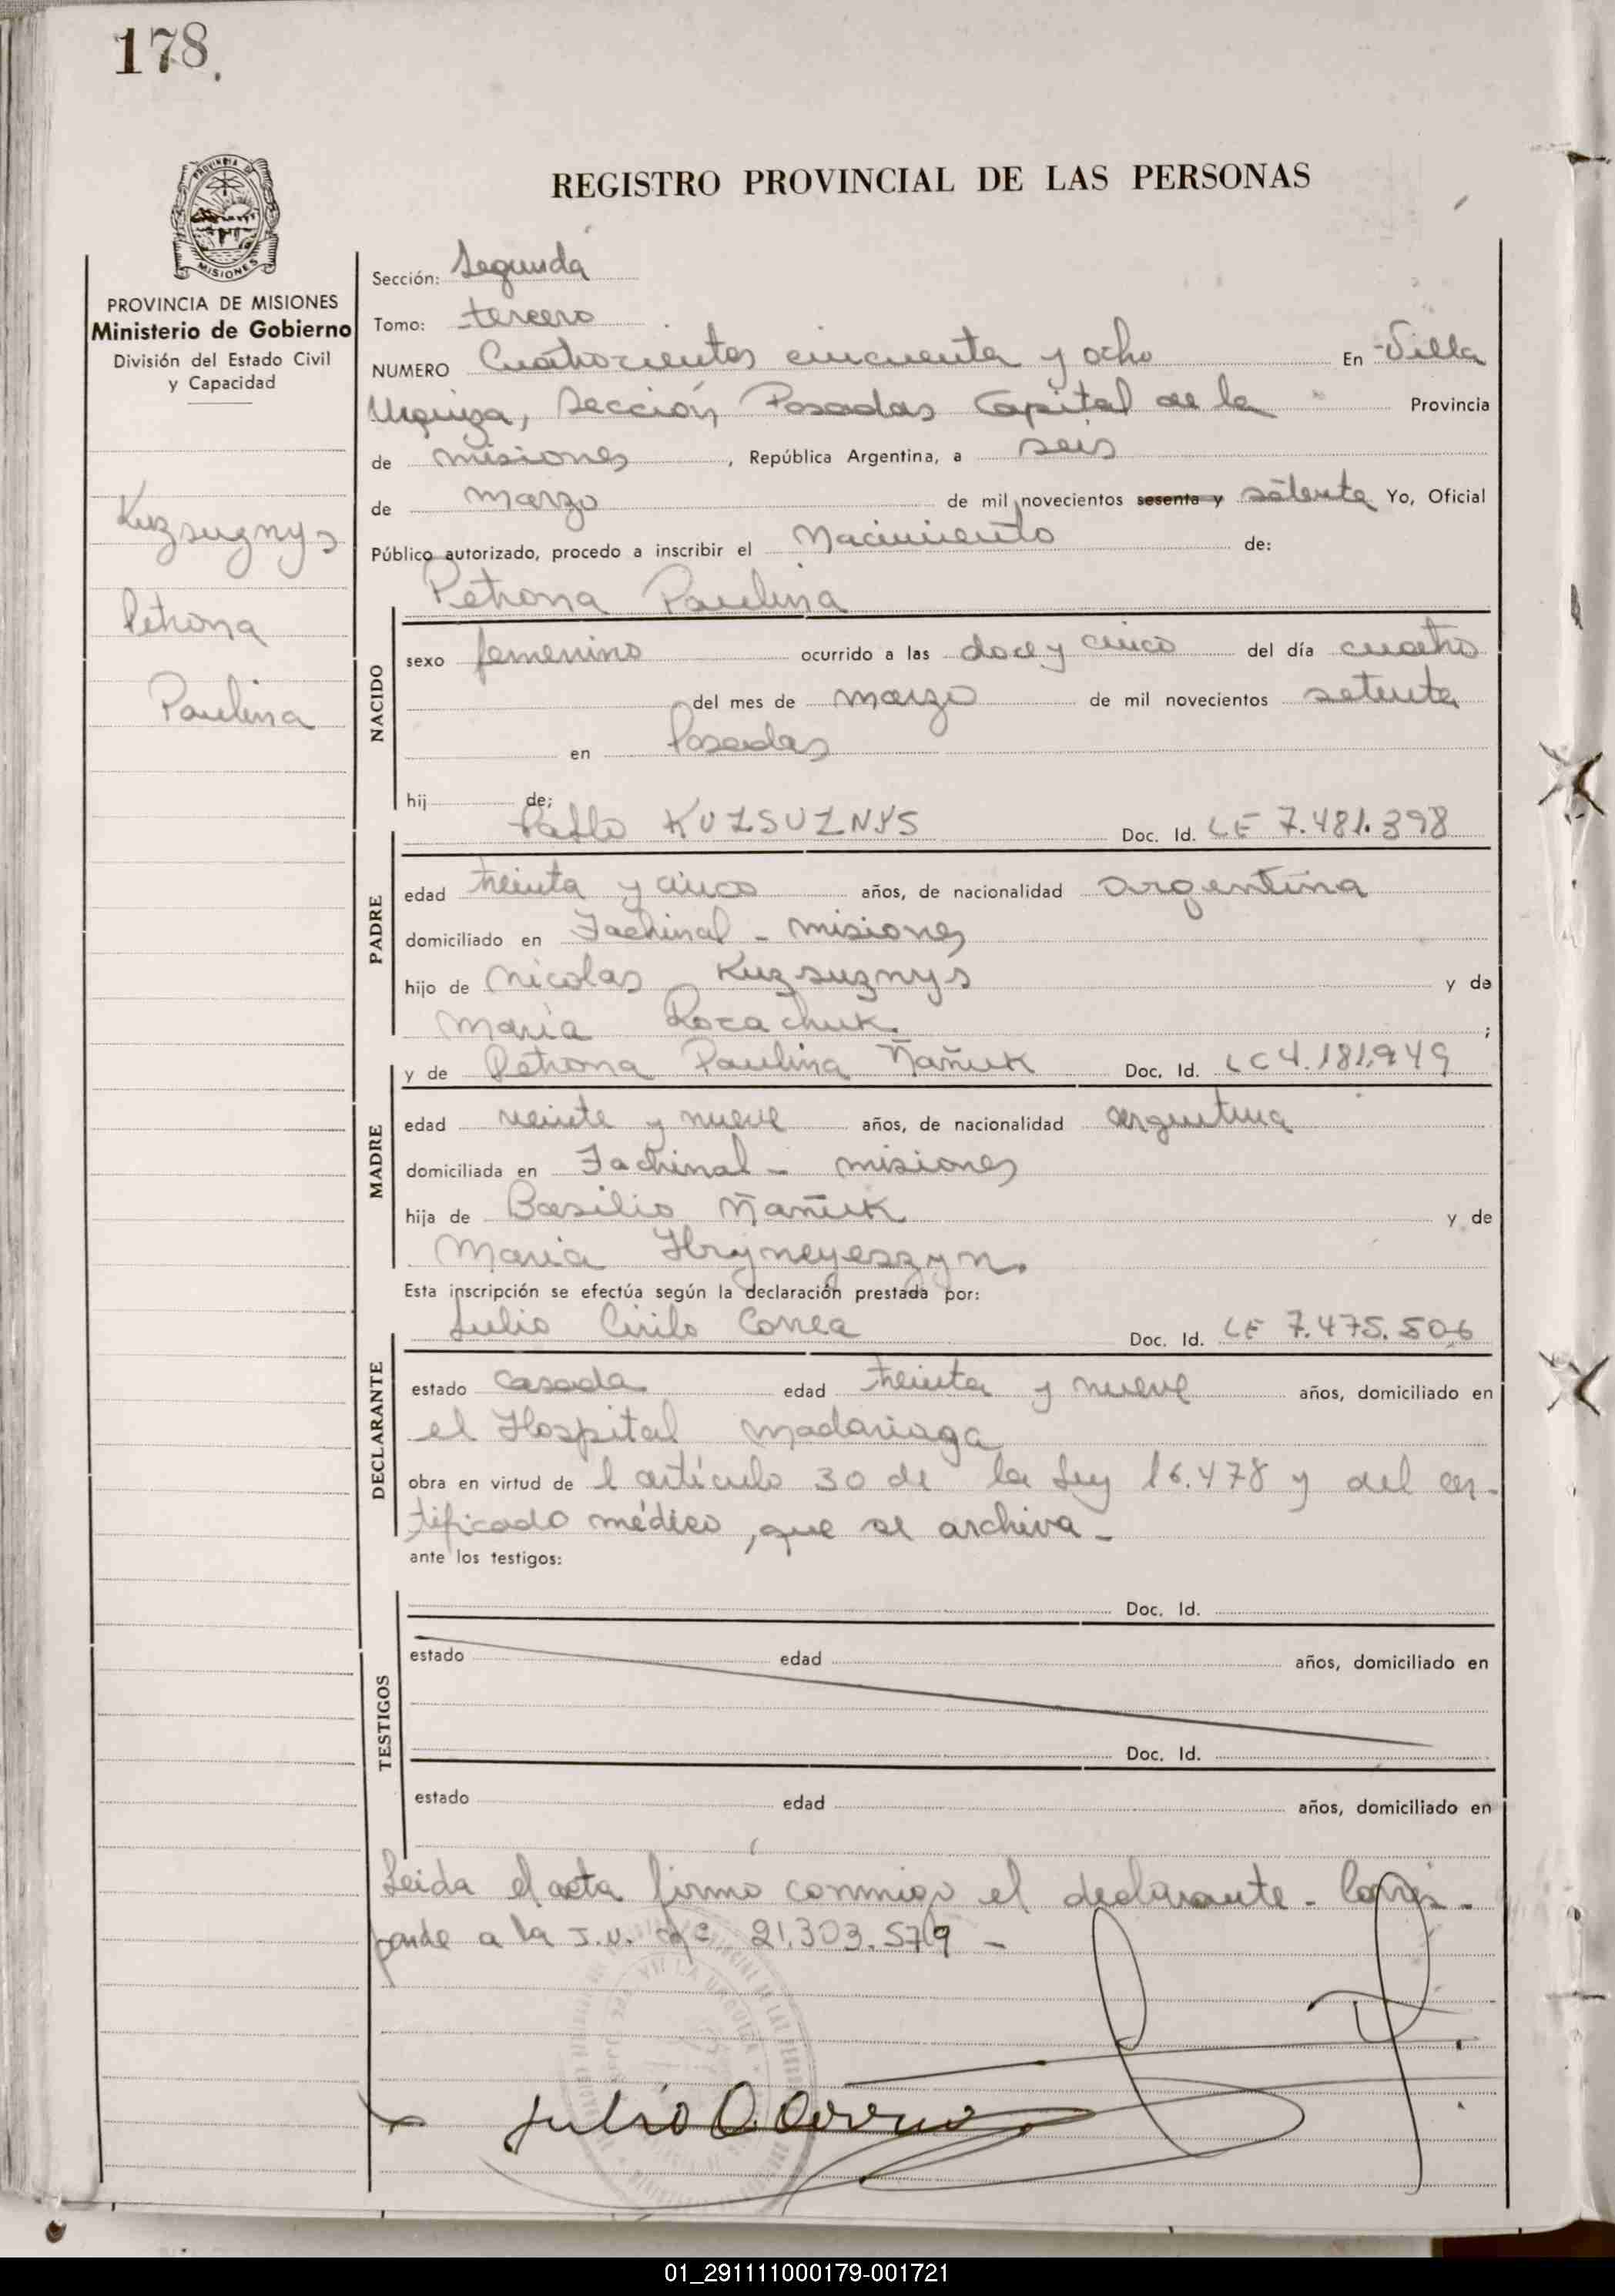 178.
REGISTRO PROVINCIAL DE LAS PERSONAS
PROVINCIA DE MISIONES
Ministerio de Gobierno
División del Estado Civil
y Capacidad
Kuzsuznys
Petrona
Paulina
Sección: Segunda
Tomo: tercero
NUMERO Cuatrocientos cincuenta y ocho En Villa
Urquiza, Sección, Posadas Capital de la Provincia
de misiones, República Argentina, a seis
de marzo de mil novecientos sesenta y sétenta Yo, Oficial
Público autorizado, procedo a inscribir el Nacimiento de:
Petrona Paulina
NACIDO
sexo femenino ocurrido a las doce y cinco del día cuatro
del mes de marzo de mil novecientos setenta
en Posadas
hij de;
Pablo KUZSUZNYS Doc. Id. LE 7.481.398
PADRE
edad treinta y cinco años, de nacionalidad argentina
domiciliado en Fachinal - misiones
hijo de Nicolas Kuzsuznys y de
María Rozachuk. ;
y de Petrona Paulina Ñañuk Doc. Id. LC 4.181.949
MADRE
edad veinte y nueve años, de nacionalidad argentina
domiciliada en Fachinal - misiones
hija de Basilio Ñañuk y de
Maria Hryneyeszyn.
Esta inscripción se efectúa según la declaración prestada por:
Julio Cirilo Correa Doc. Id. LE 7.475.506
DECLARANTE
estado casada edad treinta y nueve años, domiciliado en
el Hospital Madariaga
obra en virtud de l artículo 30 de la Ley 16.478 y del cer-
tificado médico, que se archiva -
ante los testigos:
TESTIGOS
Doc. Id.
estado edad años, domiciliado en
Doc. Id.
estado edad años, domiciliado en
Leida el acta firmó conmigo el declarante - Corres-
ponde a la I.U. 21.303.579 -
Julio C. Correa
01_291111000179-001721